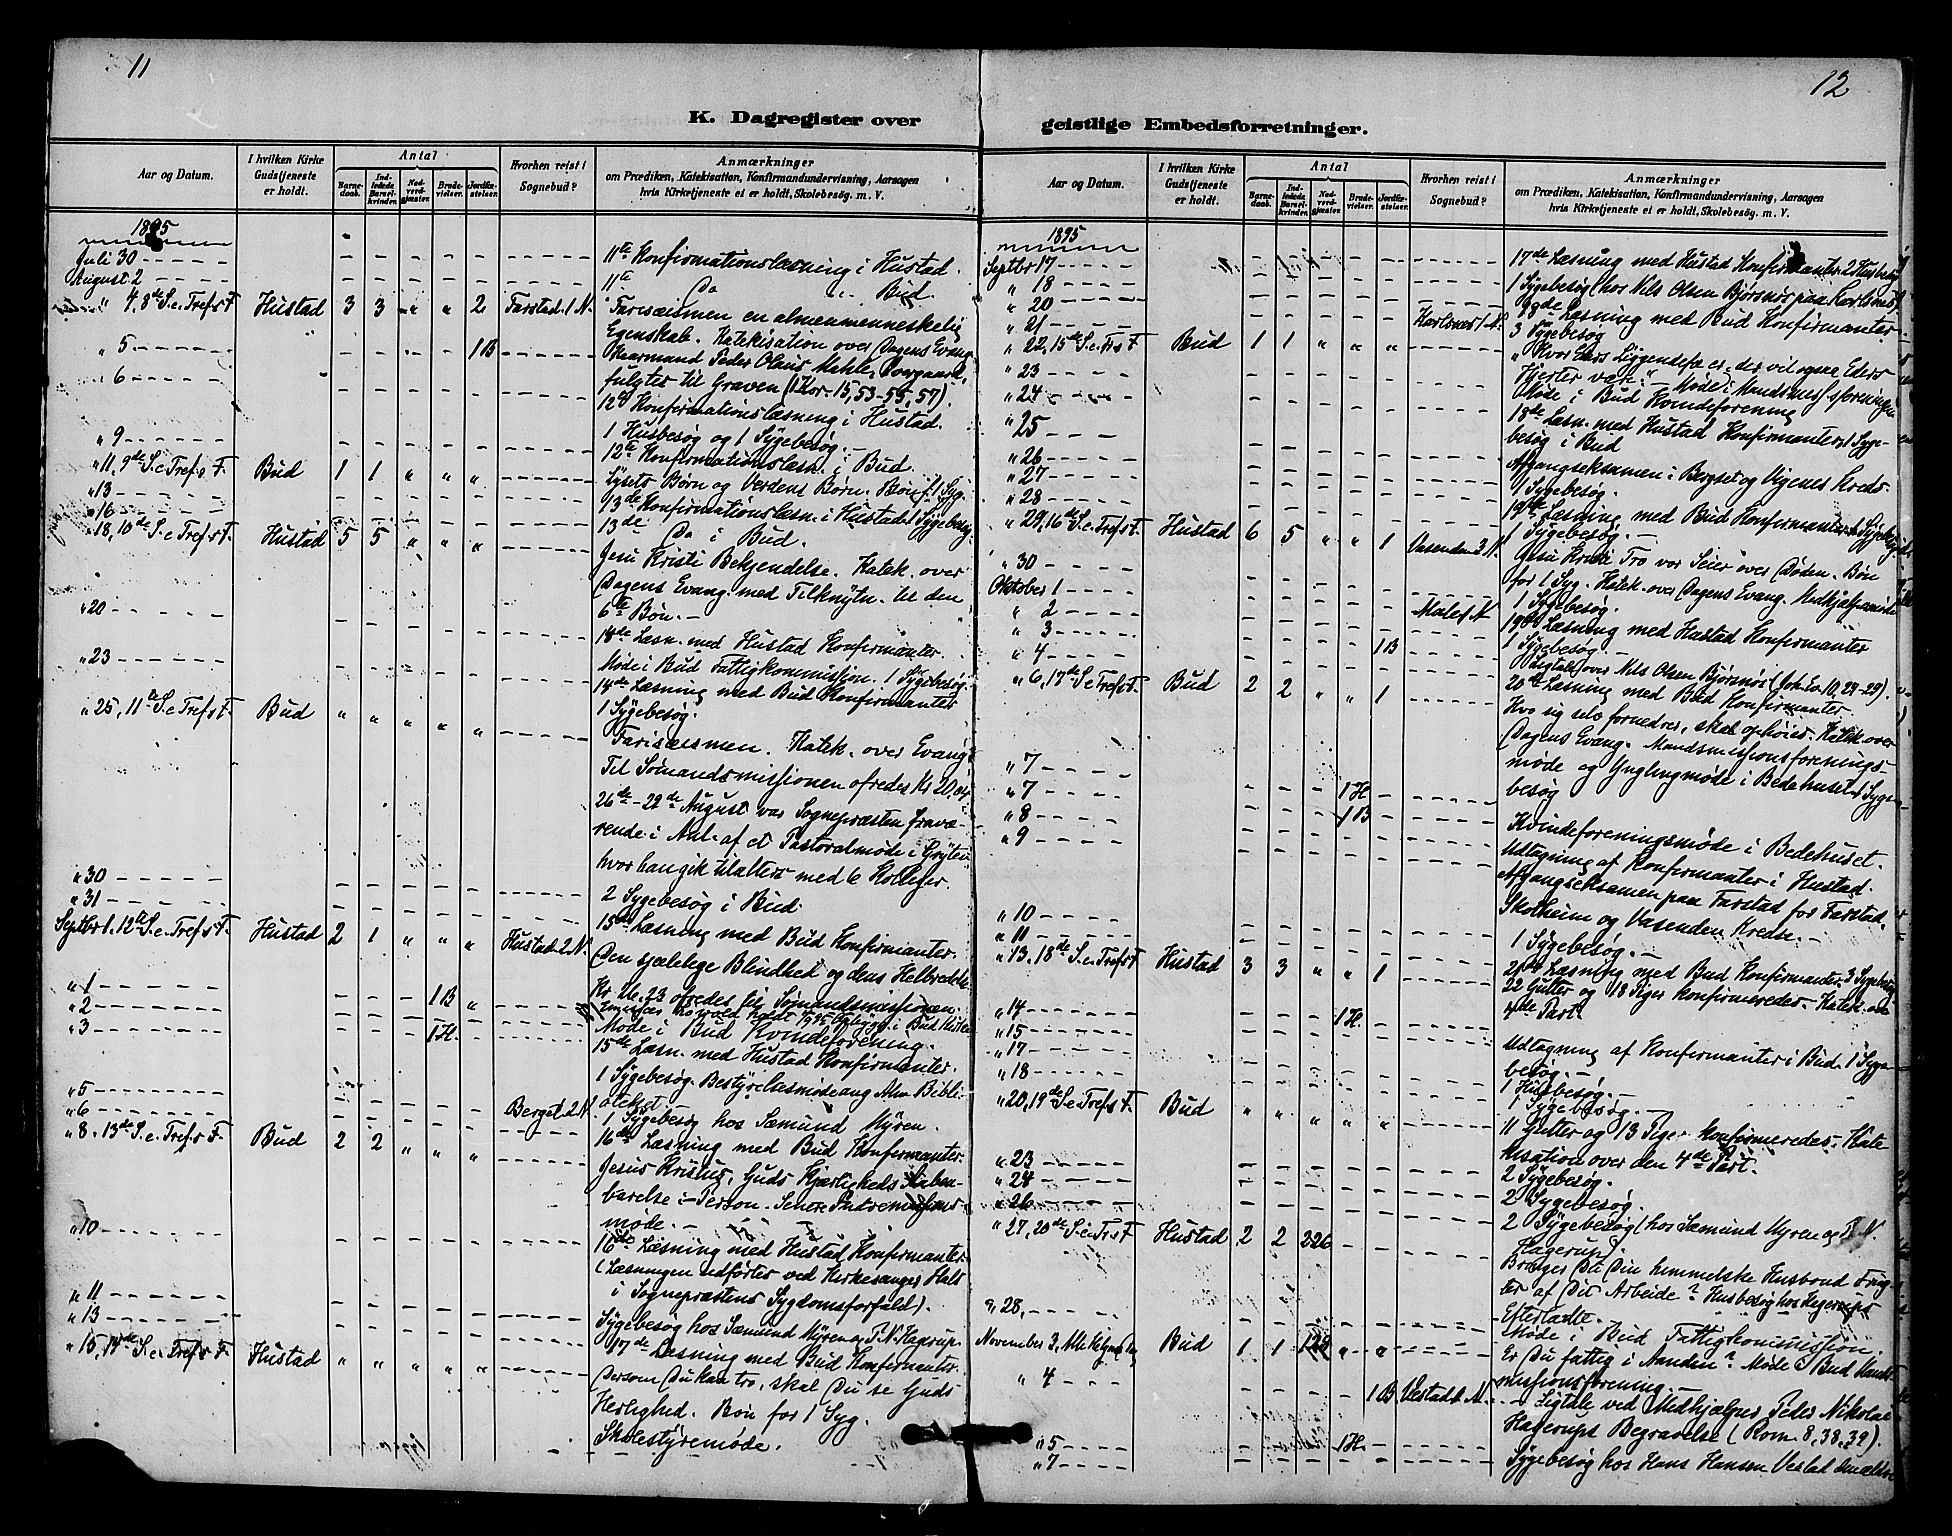 11
K. Dagregister over
Aar og Datum.
I hvilken Kirke Gudstjeneste er holdt.
Antal
Barnedaab.
Indledede Barselkvinder.
Nadverdgjæster.
Brudevielser.
Jordfæstelser.
Hvorhen reist i Sognebud?
Anmærkninger
om Prædiken, Katekisation, Konfirmandundervisning, Aarsagen
hvis Kirketjeneste ei er holdt, Skolebesøg. m. V.
1895
Juli 30 11te Konfirmationslæsning i Hustad.
August 2 11te Do " Bud.
" 4, 8de S. e. Tref. s F. Hustad 3 3 " " 2 Farstad 1 N. Farisæismen en almenmenneskelig
Egenskab. Katekisation over Dagens Evang.
" 5 1 B Peder Olaus Mahle, Overgaard,
" 6 fulgtes til Graven (1 Kor. 15, 53-55, 57).
12te Konfirmationslæsning i Hustad.
" 9 1 Husbesøg og 1 Sygebesøg.
" 11, 9de S. e. Tref. s. F. Bud 1 1 " " " 12te Konfirmationslæsn. i Bud.
" 13 Lysets Børn og Verdens Børn. Bøn f. 1 Syg.
" 16 13de Konfirmationslæsn. i Hustad. 1 Sygebesøg.
" 18, 10de S. e. Tref. s F. Hustad 5 5 " " " 13de Do i Bud.
Jesu Kristi Bekjendelse. Katek. over
Dagens Evang. med Tilknytn. til den
" 20 6te Bøn. —
14de Læsn. med Hustad Konfirmanter.
" 23 Møde i Bud Fattigkommission. 1 Sygebesøg.
14de Læsning med Bud Konfirmanter
" 25, 11te S. e. Tref. s F. Bud " " " " " 1 Sygebesøg.
Farisæismen. Katek. over Evang.
Til Sømandsmissionen ofredes Kr 20,
26de - 22de August var Sognepræsten fravæ-
rende i Anl. af et Pastoralmøde i Gryten
hvor han gik tilalters med 6 Kolleger.
" 30 2 Sygebesøg i Bud.
" 31 15de Læsning med Bud Konfirmanter.
Septbr 1. 12te S. e. Tref. s F. Hustad 2 1 " " " Hustad 2 N. Den sjælelige Blindhed og dens Helbredelse.
Kr 16.23 ofredes til Sømandsmissionen.
" 1 1 B "
" 2 Møde i Bud Kvindeforening.
" 3 1 H. 15de Læsn. med Hustad Konfirmanter.
1 Sygebesøg. Bestyrelsesmøde ang. Alm. Bibli-
" 5 oteket. —
" 6 Berget 2 N. 1 Sygebesøg hos Sæmund Myren.
" 8. 13de S. e. Tref. s F. Bud 2 2 " " " 16de Læsning med Bud Konfirmanter.
Jesus Kristus, Guds Kjærligheds Aaben-
barelse i Person. Senere Indremissions-
" 10 møde. —
16de Læsning med Hustad Konfirmanter
(Læsningen udførtes ved Kirkesanger Hals
" 11 i Sognepræstens Sygdomsforfald).
" 13 Sygebesøg hos Sæmund Myren og P. N. Hagerup.
" 15, 14de S. e. Tref. s F. Hustad " " " " " 17de Læsning med Bud Konfirmanter.
Dersom Du kan tro, skal Du se Guds
Herlighed. Bøn for 1 Syg.
Skolestyremøde.
12
geistlige Embedsforretninger.
Aar og Datum.
I hvilken Kirke Gudstjeneste er holdt.
Antal
Barnedaab.
Indledede Barselkvinder.
Nadverdgjæster.
Brudevielser.
Jordfæstelser.
Hvorhen reist i Sognebud?
Anmærkninger
om Prædiken, Katekisation, Konfirmandundervisning, Aarsagen
hvis Kirketjeneste ei er holdt, Skolebesøg. m. V.
1895
Septbr 17 17de Læsning med Hustad Konfirmanter. 2 Husbesøg
" 18 1 Sygebesøg (hos Nils Olsen Bjørsnøs paa Karlsnes).
" 20 18de Læsning med Bud Konfirmanter
" 21 Karlsnes 1 N. 3 Sygebesøg
" 22, 15de S. e. Tr. s F. Bud 1 1 " " " " Hvor Eders Liggendefæ er, der vil ogsaa Eders
" 23 Hjerter være." Møde i Mandsmisf.foreningen
" 24 Møde i Bud Kvindeforening
" 25 18de Læsn. med Hustad Konfirmanter. 1 Syge-
besøg i Bud
" 26 Afgangseksamen i Bergset og Vigenes Kreds.
" 27 1 Sygebesøg.
" 28 19de Læsning med Bud Konfirmanter.
" 29, 16de S. e. Tref. s F. Hustad 6 5 " " 1 Vasenden 3 N. 1 Sygebesøg. —
Jesu Kristi Tro vor Seier over Døden. Bøn
" 30 for 1 Syg. Katek. over Dagens Evang. Medhjælpermøde
Oktober 1 1 Sygebesøg.
" 2 Male 1 N 19de Læsning med Hustad Konfirmanter
" 3 1 Sygebesøg. —
" 4 1 B Ligtale over Nils Olsen Bjørsnøs (Joh. Ev. 10, 27-29).
" 6, 17de S. e. Tref. s F. Bud 2 2 " " 1 20de Læsning med Bud Konfirmanter.
Hvo sig selv fornedrer, skal ophøies. Katek. over
Dagens Evang. Mandsmissionsforenings-
" 7 møde og Ynglingmøde i Bedehuset. 1 Syge-
" 7 1 H. besøg
" 8 1 B Kvindeforeningsmøde i Bedehuset.
" 9 Udtagning af Konfirmanter i Hustad.
Afgangseksamen paa Farstad for Farstad,
" 10 Skolheim og Vasenden Kredse. —
" 11 1 Sygebesøg. —
" 13. 18de S. e. Tref. s F Hustad 3 3 " " 1 21de Læsning med Bud Konfirmanter. 3 Sygebesøg.
22 Gutter og 18 Piger konfirmeredes. Katek. over
" 14 1 H. 4de Part.
" 15 Udtagning af Konfirmanter i Bud. 1 Syge-
" 17 besøg. —
" 18 1 Husbesøg. —
" 20, 19de S. e. Tref. s F. Bud " " " " " 1 Sygebesøg. —
11 Gutter og 13 Piger konfirmeredes. Kate-
" 23 kisation over den 4de Part.
" 24 2 Sygebesøg.
" 26 2 Sygebesøg.
" 27, 20de S. e. Tr. s F. Hustad 2 2 226 2 Sygebesøg (hos Sæmund Myren og P. N.
Hagerup).
Bringer Du Din himmelske Husbond Frug-
ter af Dit Arbeide? Husbesøg hos Hagerups
" 28, Efterladte.
November 3, Bud 1 1 " " Møde i Bud Fattigkommission.
Er Du fattig i Aanden? Møde i Bud Mands-
" 4 1 B. Vestad 1 N. missionsforening. —
Ligtale ved Medhjælper Peder Nikolai
" 5 1 H. Hagerups Begravelse (Rom. 8, 38, 39).
" 7 Sygebesøg hos Hans Hansen Vestad den ældre